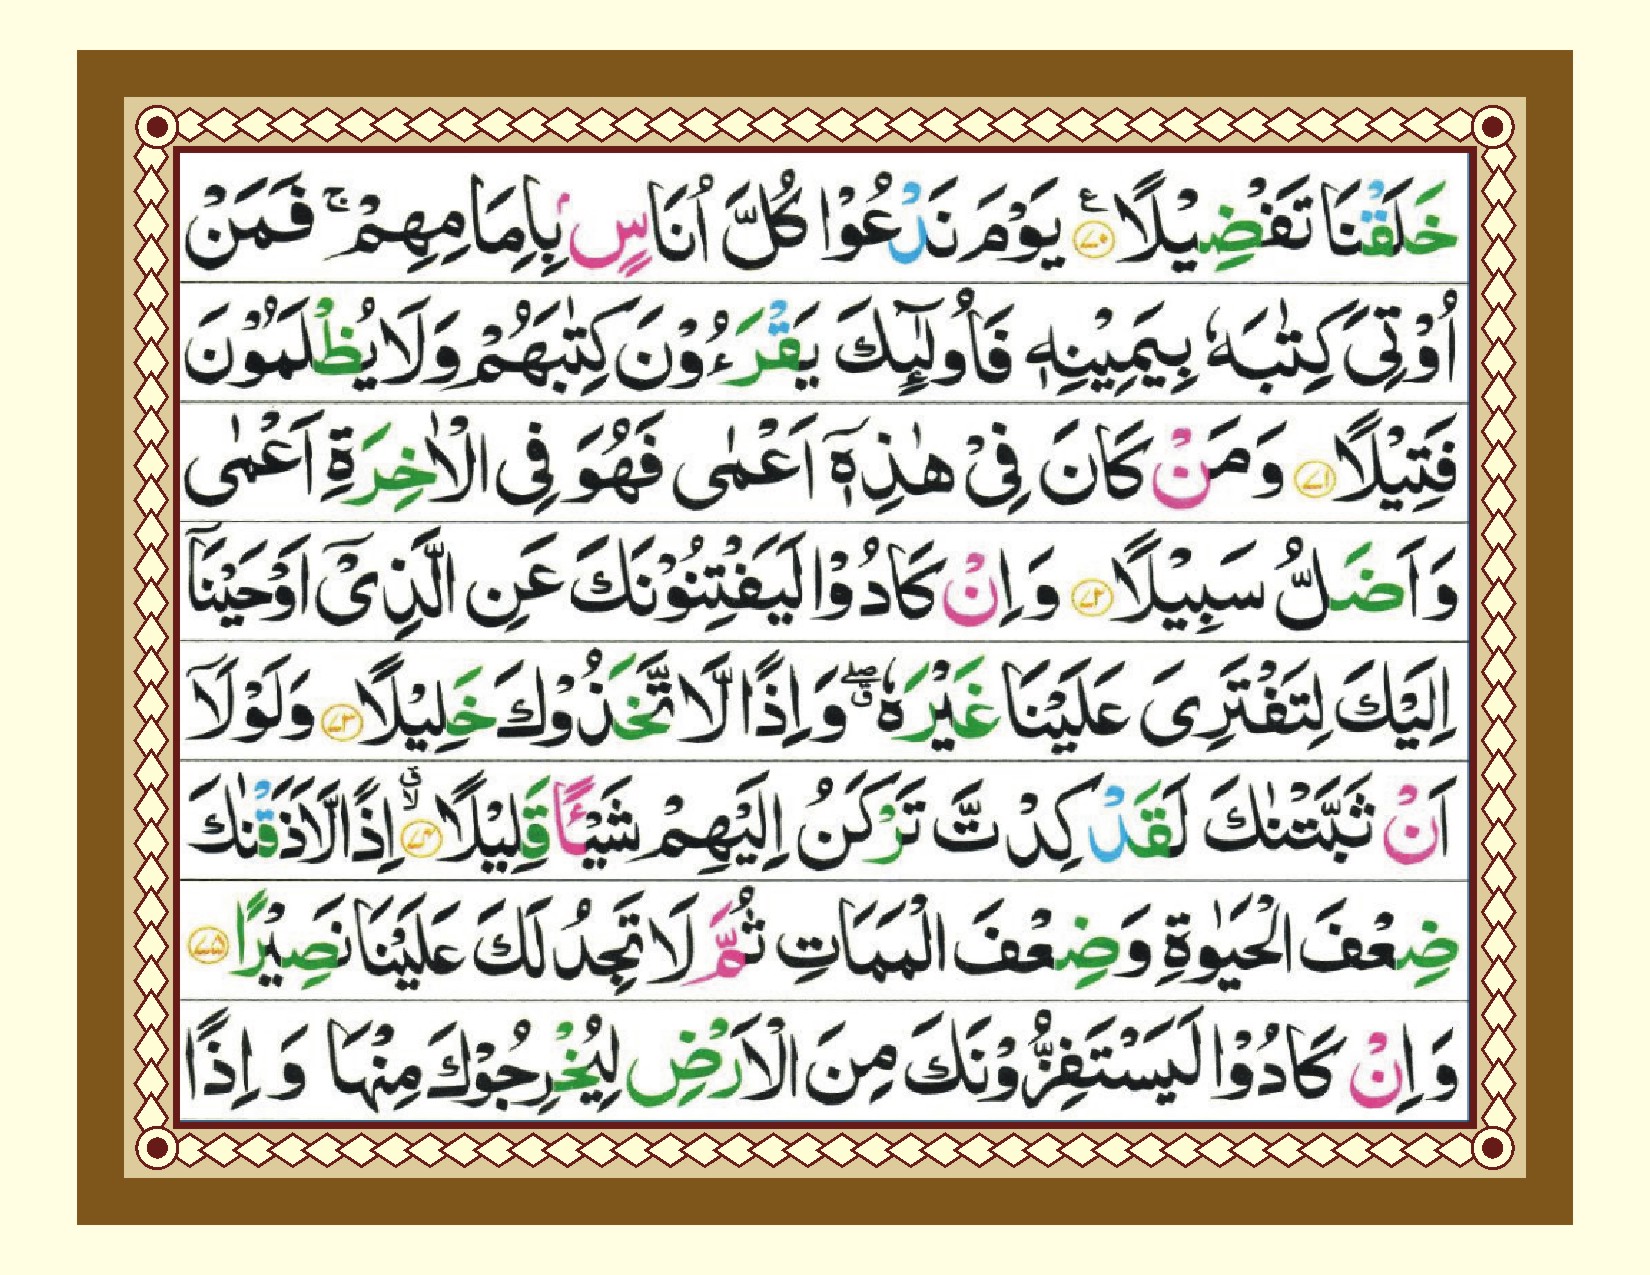 خَلَقْنَا تَفْضِيْلًا ۧ ﴿۷۰﴾ يَوْمَ نَدْعُوْا كُلَّ اُنَاسٍۭ بِاِمَامِهِمْ ۚ فَمَنْ
اُوْتِىَ كِتٰبَهٗ بِيَمِيْنِهٖ فَاُولٰٓئِكَ يَقْرَءُوْنَ كِتٰبَهُمْ وَلَا يُظْلَمُوْنَ
فَتِيْلًا ﴿۷۱﴾ وَمَنْ كَانَ فِىْ هٰذِهٖۤ اَعْمٰى فَهُوَ فِى الْاٰخِرَةِ اَعْمٰى
وَاَضَلُّ سَبِيْلًا ﴿۷۲﴾ وَاِنْ كَادُوْا لَيَفْتِنُوْنَكَ عَنِ الَّذِىْۤ اَوْحَيْنَاۤ
اِلَيْكَ لِتَفْتَرِىَ عَلَيْنَا غَيْرَهٗ ۖۗ وَاِذًا لَّاتَّخَذُوْكَ خَلِيْلًا ﴿۷۳﴾ وَلَوْلَاۤ
اَنْ ثَبَّتْنٰكَ لَقَدْ كِدْتَّ تَرْكَنُ اِلَيْهِمْ شَيْـًٔا قَلِيْلًا ۙۗ ﴿۷۴﴾ اِذًا لَّاَذَقْنٰكَ
ضِعْفَ الْحَيٰوةِ وَضِعْفَ الْمَمَاتِ ثُمَّ لَا تَجِدُ لَكَ عَلَيْنَا نَصِيْرًا ﴿۷۵﴾
وَاِنْ كَادُوْا لَيَسْتَفِزُّوْنَكَ مِنَ الْاَرْضِ لِيُخْرِجُوْكَ مِنْهَا وَاِذًا